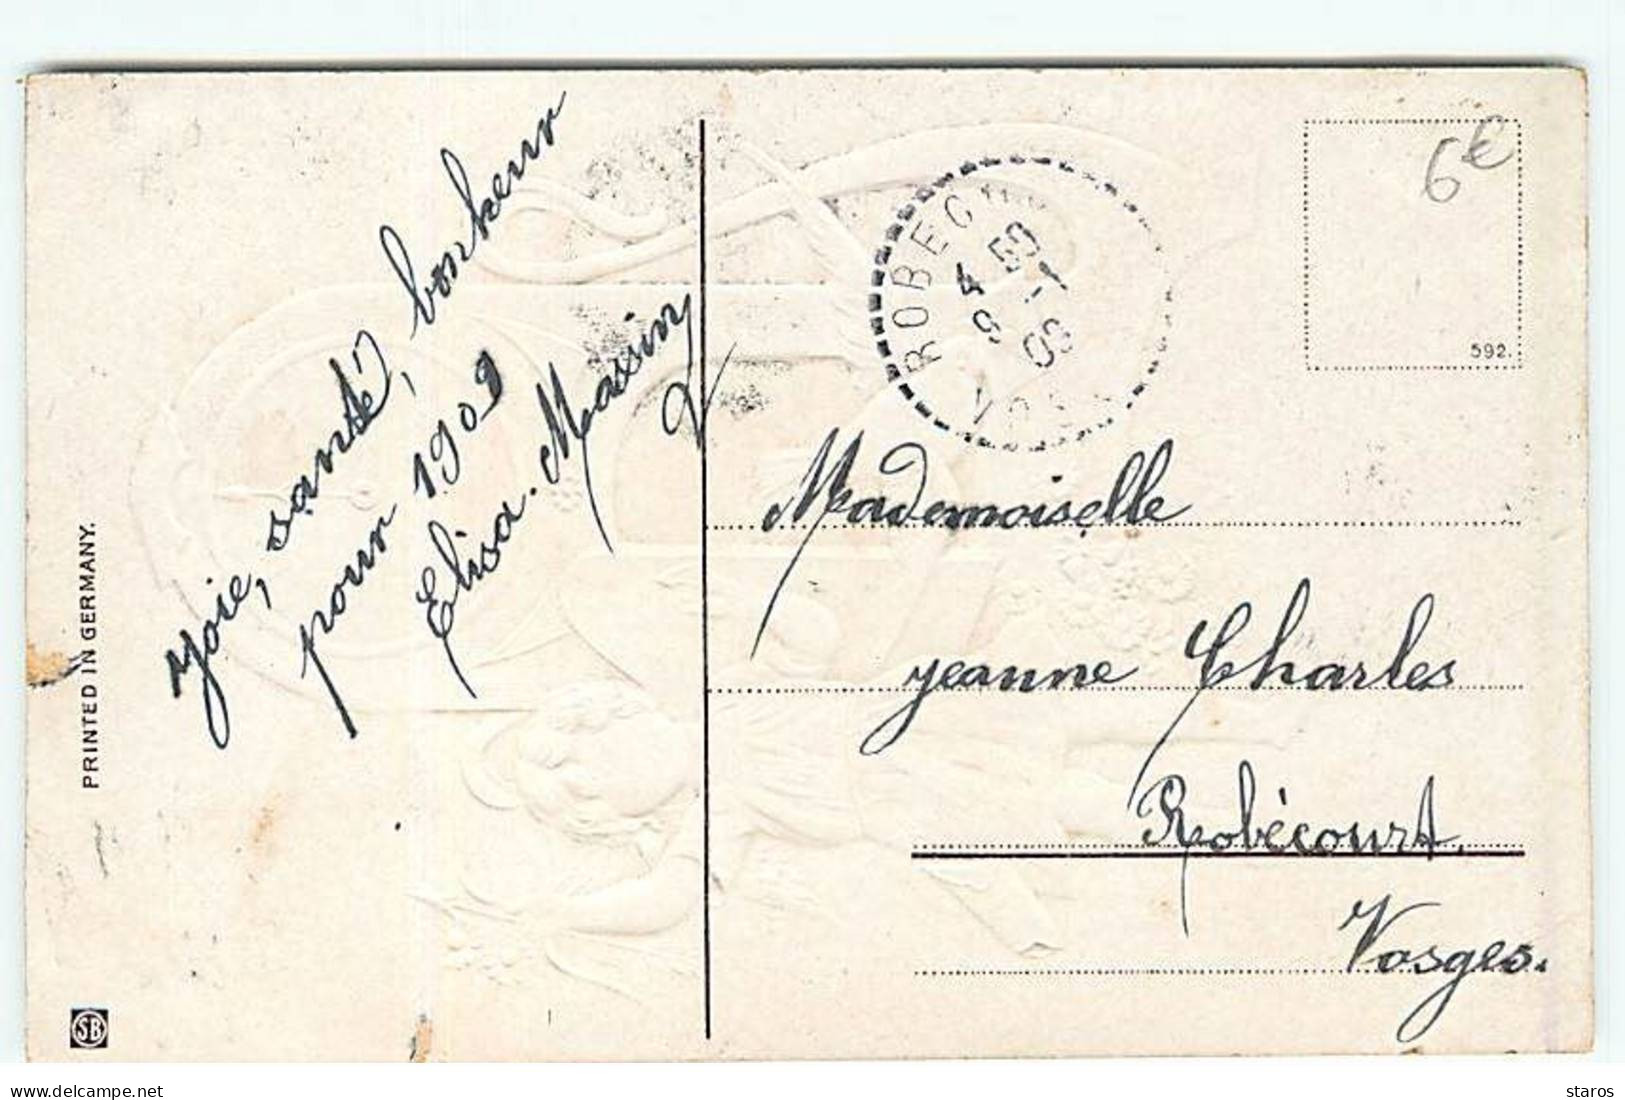 Joie, santé, bonheur
pour 1909
Elisa Massin
PRINTED IN GERMANY.
SB
ROBEC
4 50
9 -1
09
VOSG
6€
592.
Mademoiselle
Jeanne Charles
Robécourt.
Vosges.
Delcampe.net
staros